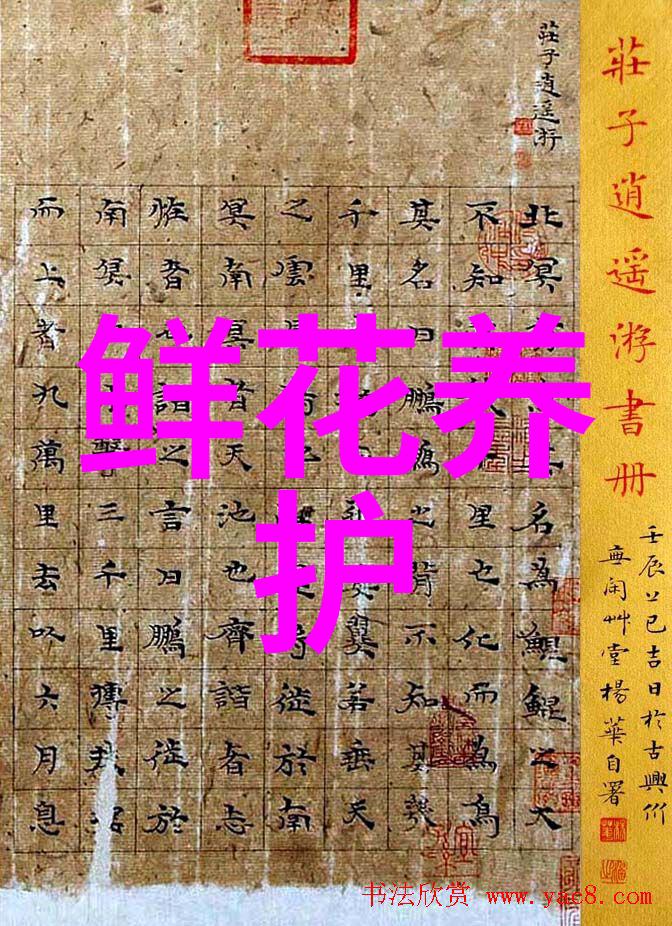 莊子逍遥游書冊
壬辰上巳吉日於古興竹
無閑艸堂楊華自署
莊子逍遥游
北冥名為鯤鯤之大
不知里也化而為鳥
其名曰鵬鵬之背不知其幾
千里其翼若垂天
之雲將徙於南
冥南冥者天池也齊諧者志
怪者也諧之言曰鵬之徙於
南冥擊三千里摶扶搖
而上者九萬里去以六月息
鲜花养
护
书法欣赏 www.yac8.com